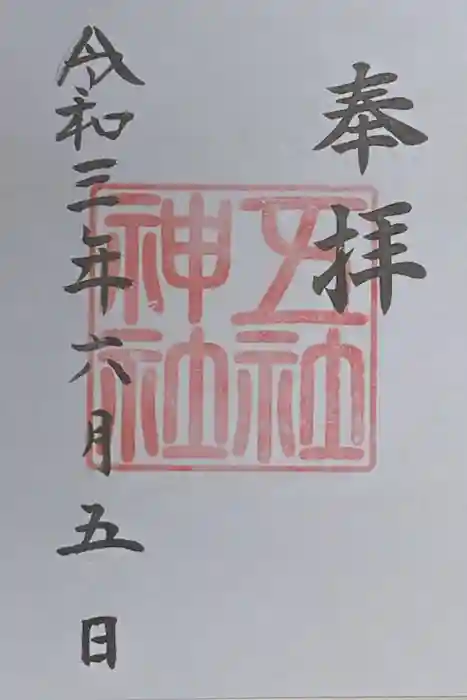 奉拝
五社
神社
令和三年六月五日